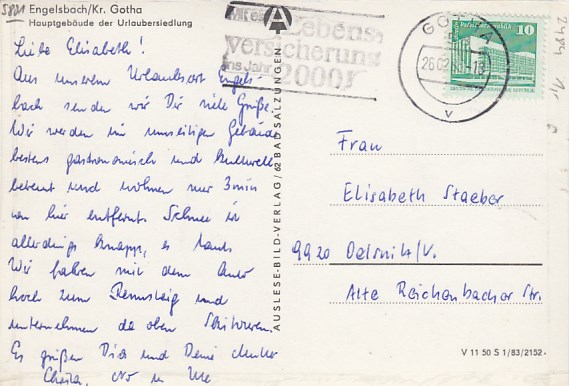 5801 Engelsbach/Kr. Gotha
Hauptgebäude der Urlaubersiedlung
Liebe Elisabeth!
Aus unserem Urlaubsort Engels-
bach senden wir Dir viele Grüße.
Wir werden im umseitigen Gebäude
bestens gastronomisch und kulturell
betreut und wohnen nur 3 min
von hier entfernt. Schnee ist
allerdings knapp, es taut.
Wir fahren mit dem Auto
hoch zum Rennsteig und
unternehmen da oben Skitouren.
Es grüßen Dich und Deine Mutter
AUSLESE-BILD-VERLAG/62 BAD SALZUNGEN
Lebens-
versicherung
ins Jahr
2000!
GOTHA
26.02.
v
10
Frau
Elisabeth Staeber
9920 Oelsnitz/V.
Alte Reichenbacher Str.
V 11 50 S 1/83/2152